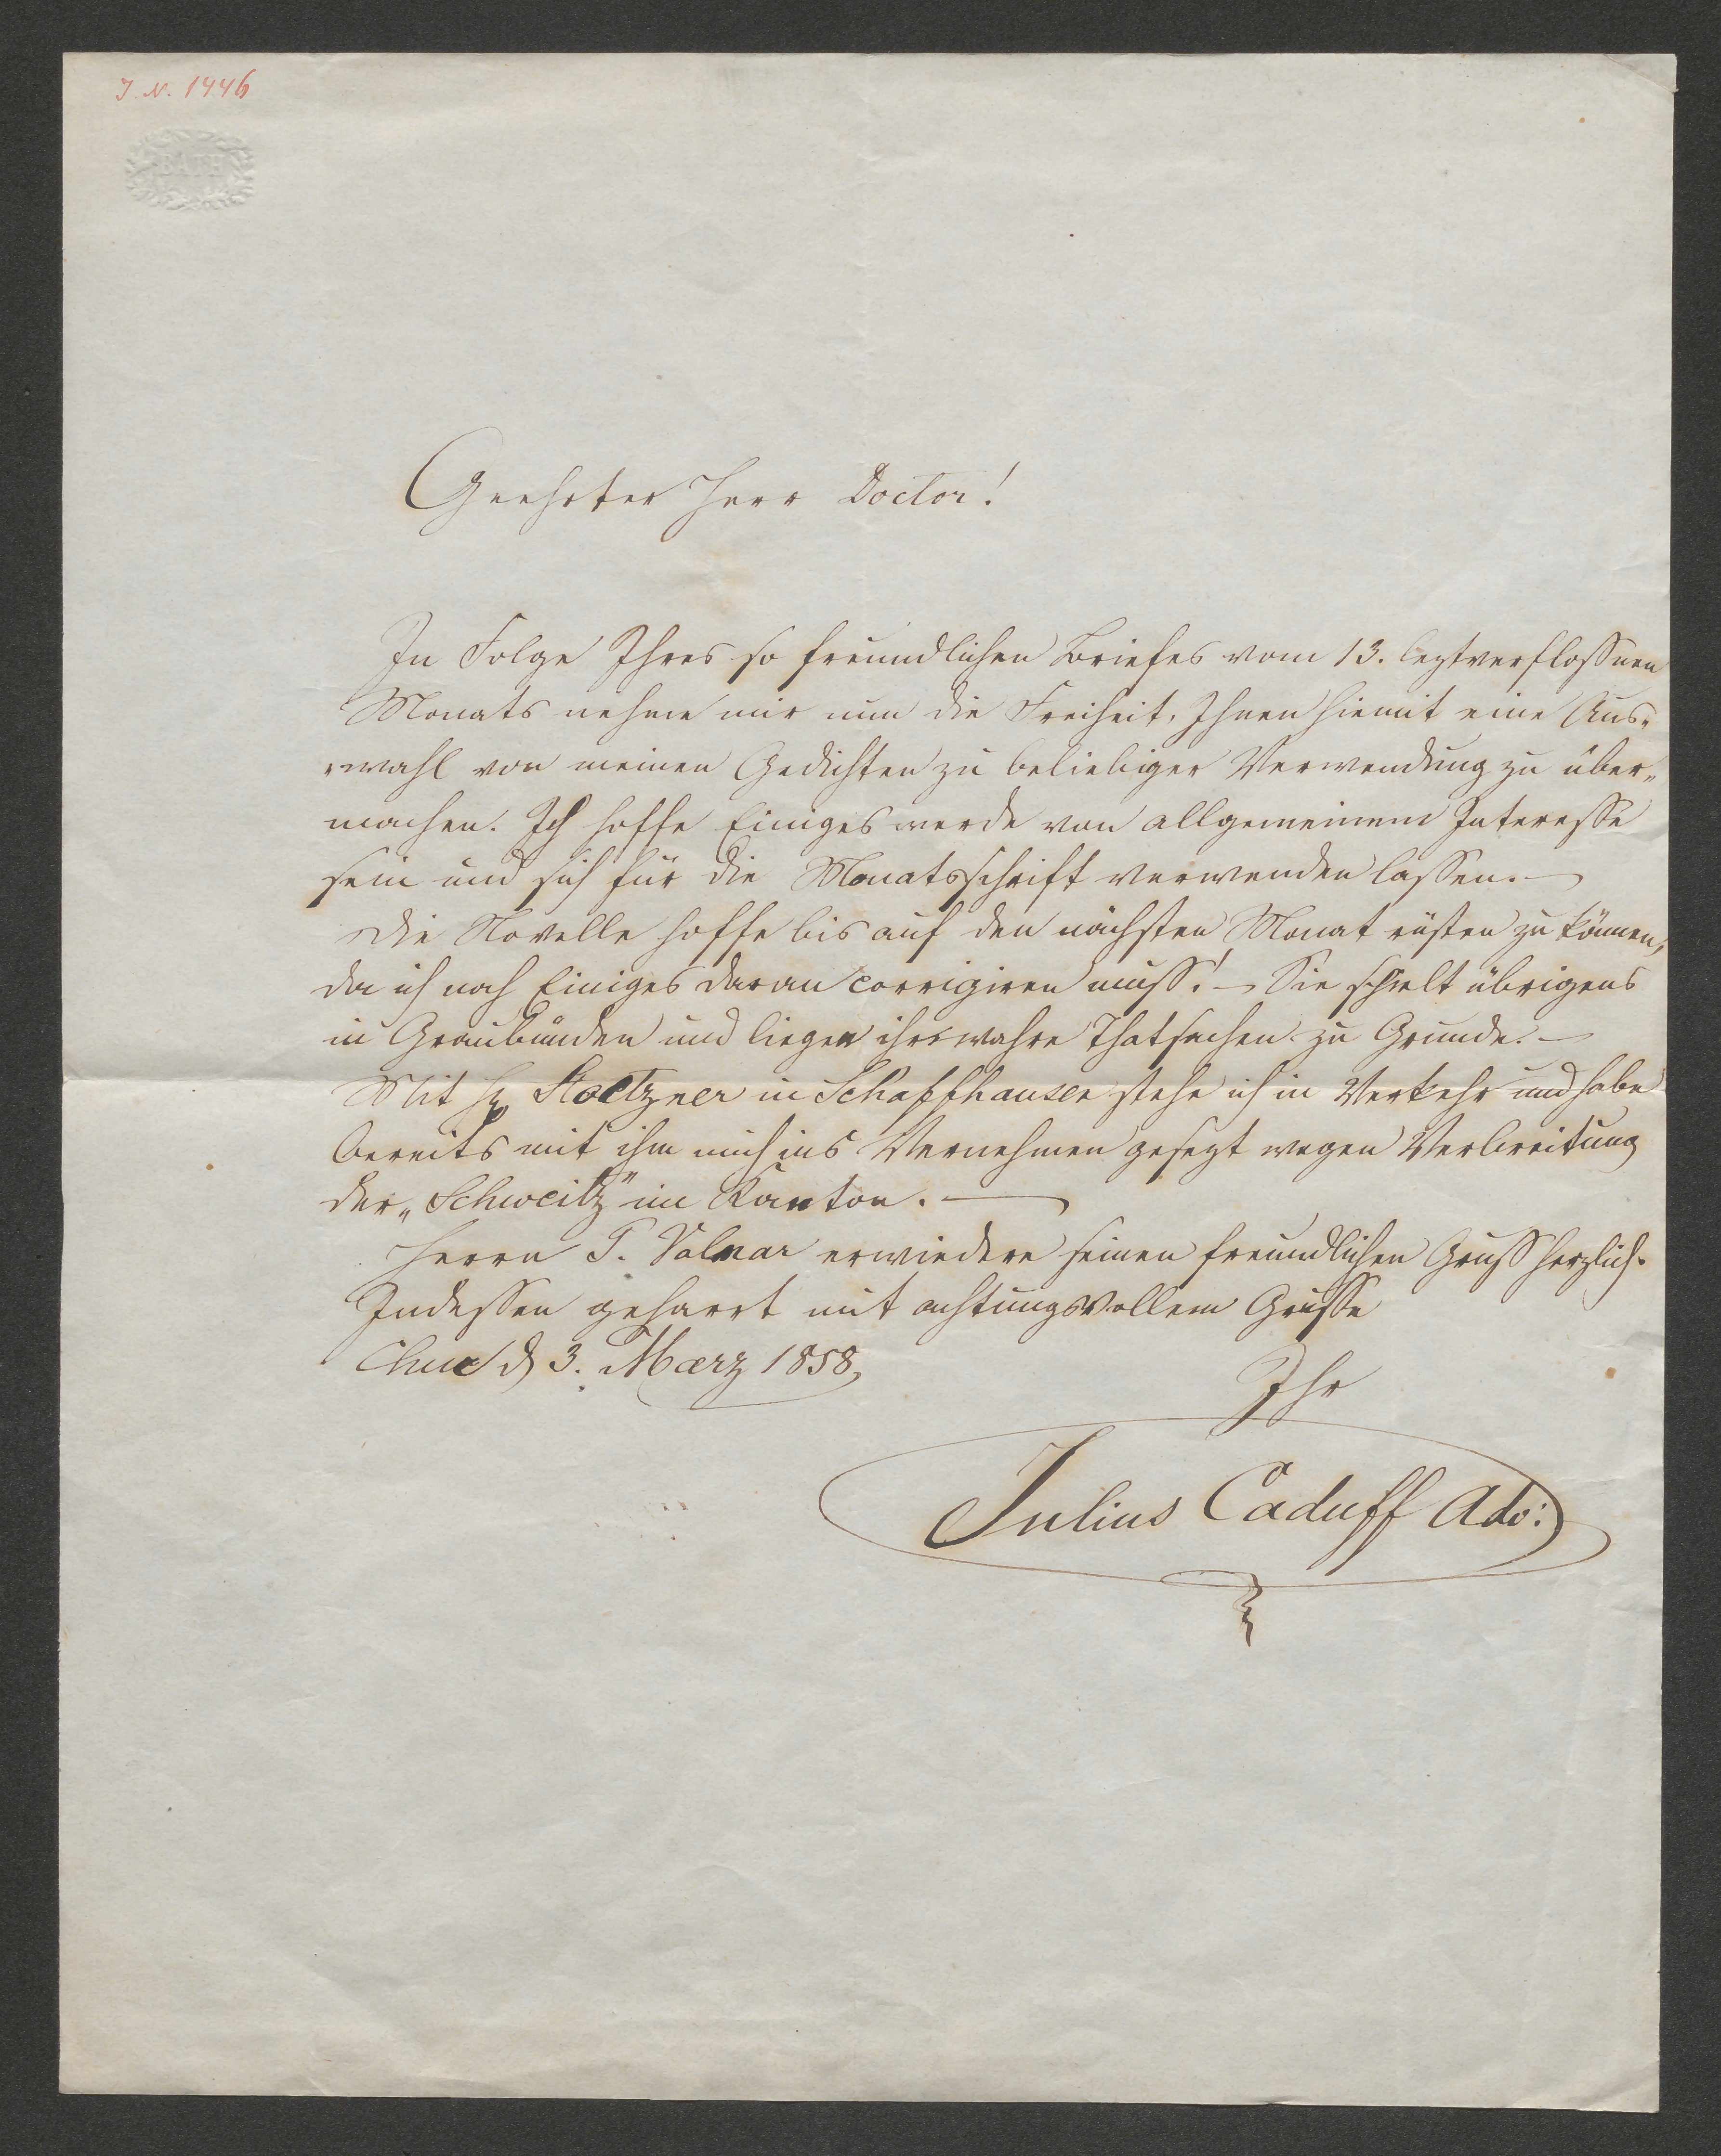 J. N. 1446
BATH
Geehrter Herr Doctor!
In Folge Ihres so freundlichen Briefes vom 13. leztverfloßnen
Monats nehme mir nun die Freiheit, Ihnen hiemit eine Aus„
„wahl von meinen Gedichten zu beliebiger Verwendung zu über„
machen. Ich hoffe Einiges werde von allgemeinem Interesse
sein und sich für die Monatsschrift verwenden lassen. —
Die Novelle hoffe bis auf den nächsten Monat rüsten zu können,
da ich noch Einiges daran corrigiren muß! — Sie spielt übrigens
in Graubünden und liegen ihr wahre Thatsachen zu Grunde. —
Mit H. Stoetzner in Schaffhausen stehe ich in Verkehr und habe
bereits mit ihm mich ins Vernehmen gesezt wegen Verbreitung
der „Schweitz" im Kanton. —
Herrn P. Volmar erwiedere seinen freundlichen Gruß herzlich.
Indessen geharrt mit achtungsvollem Gruße
Chur d 3. Maerz 1858,
Ihr
Julius Caduff Adv: